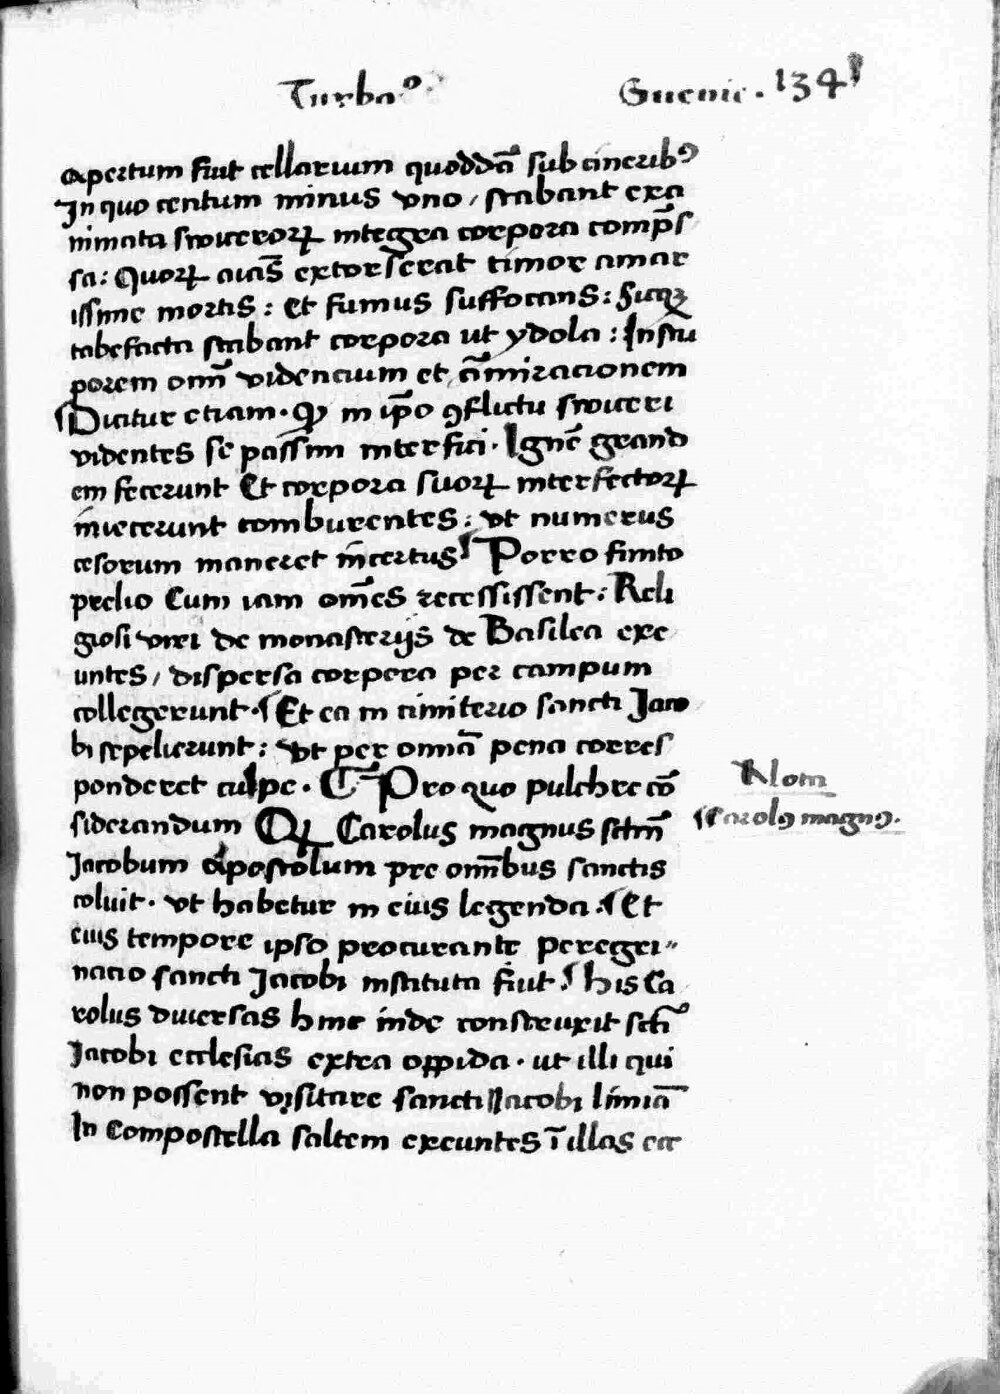 Turba⁹ Sueuie . 134
apertum fuit cellarium quoddā sub cinerib⁹
In quo centum minus vno / stabant exa
nimata swiceroꝝ integra corpora comp̄s
sa : Quoꝝ aīas extorserat timor amar
issime mortis : et fumus suffocans : Sicqꝫ
tabefacta stabant corpora ut ydola : In stu
porem om̄ videncium et ām̄iracionem
¶ Dicitur etiam . ꝙ in ip̄o ꝯflictu swiceri
videntes se passim interfici . Ignē grand
em fecerunt Et corpora suoꝝ interfectoꝝ
iniecerunt comburentes : vt numerus
cesorum maneret īncertus ¶ Porro finito
prelio Cum iam om̄es recessissent : Reli
giosi viri de monasterijs de Basilea exe
untes / dispersa corpora per campum
collegerunt . ¶ Et ea in cimiterio sancti Jaco
bi sepelierunt : vt per omnā pena corres
ponderet culpe . ¶ Pro quo pulchre cō
siderandum Qꝝ Carolus magnus sctm̄
Jacobum apostolum pre omībus sanctis
coluit . vt habetur in eius legenda . ¶ Et
eius tempore ipso procurante peregri〃
nacio sancti Jacobi instituta fuit . ¶ his Ca
rolus diuersas hinc inde construxit sctī
Jacobi ecclesias extra oppida . ut illi qui
non possent visitare sancti Jacobi limīa
In Compostella saltem exeuntes ī illas ec
Nota
¶ Carol⁹ magn⁹.